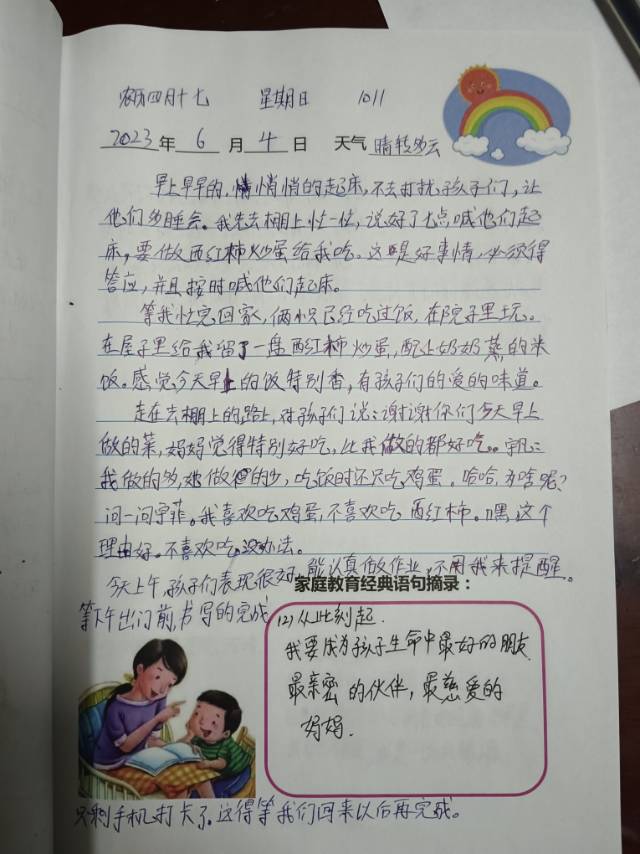 农历四月十七 星期日 1011
2023年 6 月 4 日 天气 晴转多云
早上早早的，悄悄的起床，不去打扰孩子们，让
他们多睡会。我先去棚上忙一忙，说好了七点喊他们起
床，要做西红柿炒蛋给我吃。这是好事情，必须得
答应，并且按时喊他们起床。
等我忙完回家，俩小只已经吃过饭，在院子里玩。
在屋子里给我留了一盘西红柿炒蛋，配上奶奶蒸的米
饭。感觉今天早上的饭特别香，有孩子们的爱的味道。
走在去棚上的路上，对孩子们说：谢谢你们今天早上
做的菜，妈妈觉得特别好吃，比我做的都好吃。宇凡：
我做的多，她做的少，吃饭时还只吃鸡蛋。哈哈，为啥呢？
问一问宇菲。我喜欢吃鸡蛋，不喜欢吃西红柿。嘿，这个
理由好。不喜欢吃，没办法。
今天上午，孩子们表现很好，能认真做作业，不用我来提醒。
等下午出门前，书写的完成
家庭教育经典语句摘录：
(2)从此刻起.
我要成为孩子生命中最好的朋友
最亲密的伙伴，最慈爱的
妈妈.
只剩手机打卡了。这得等我们回来以后再完成。